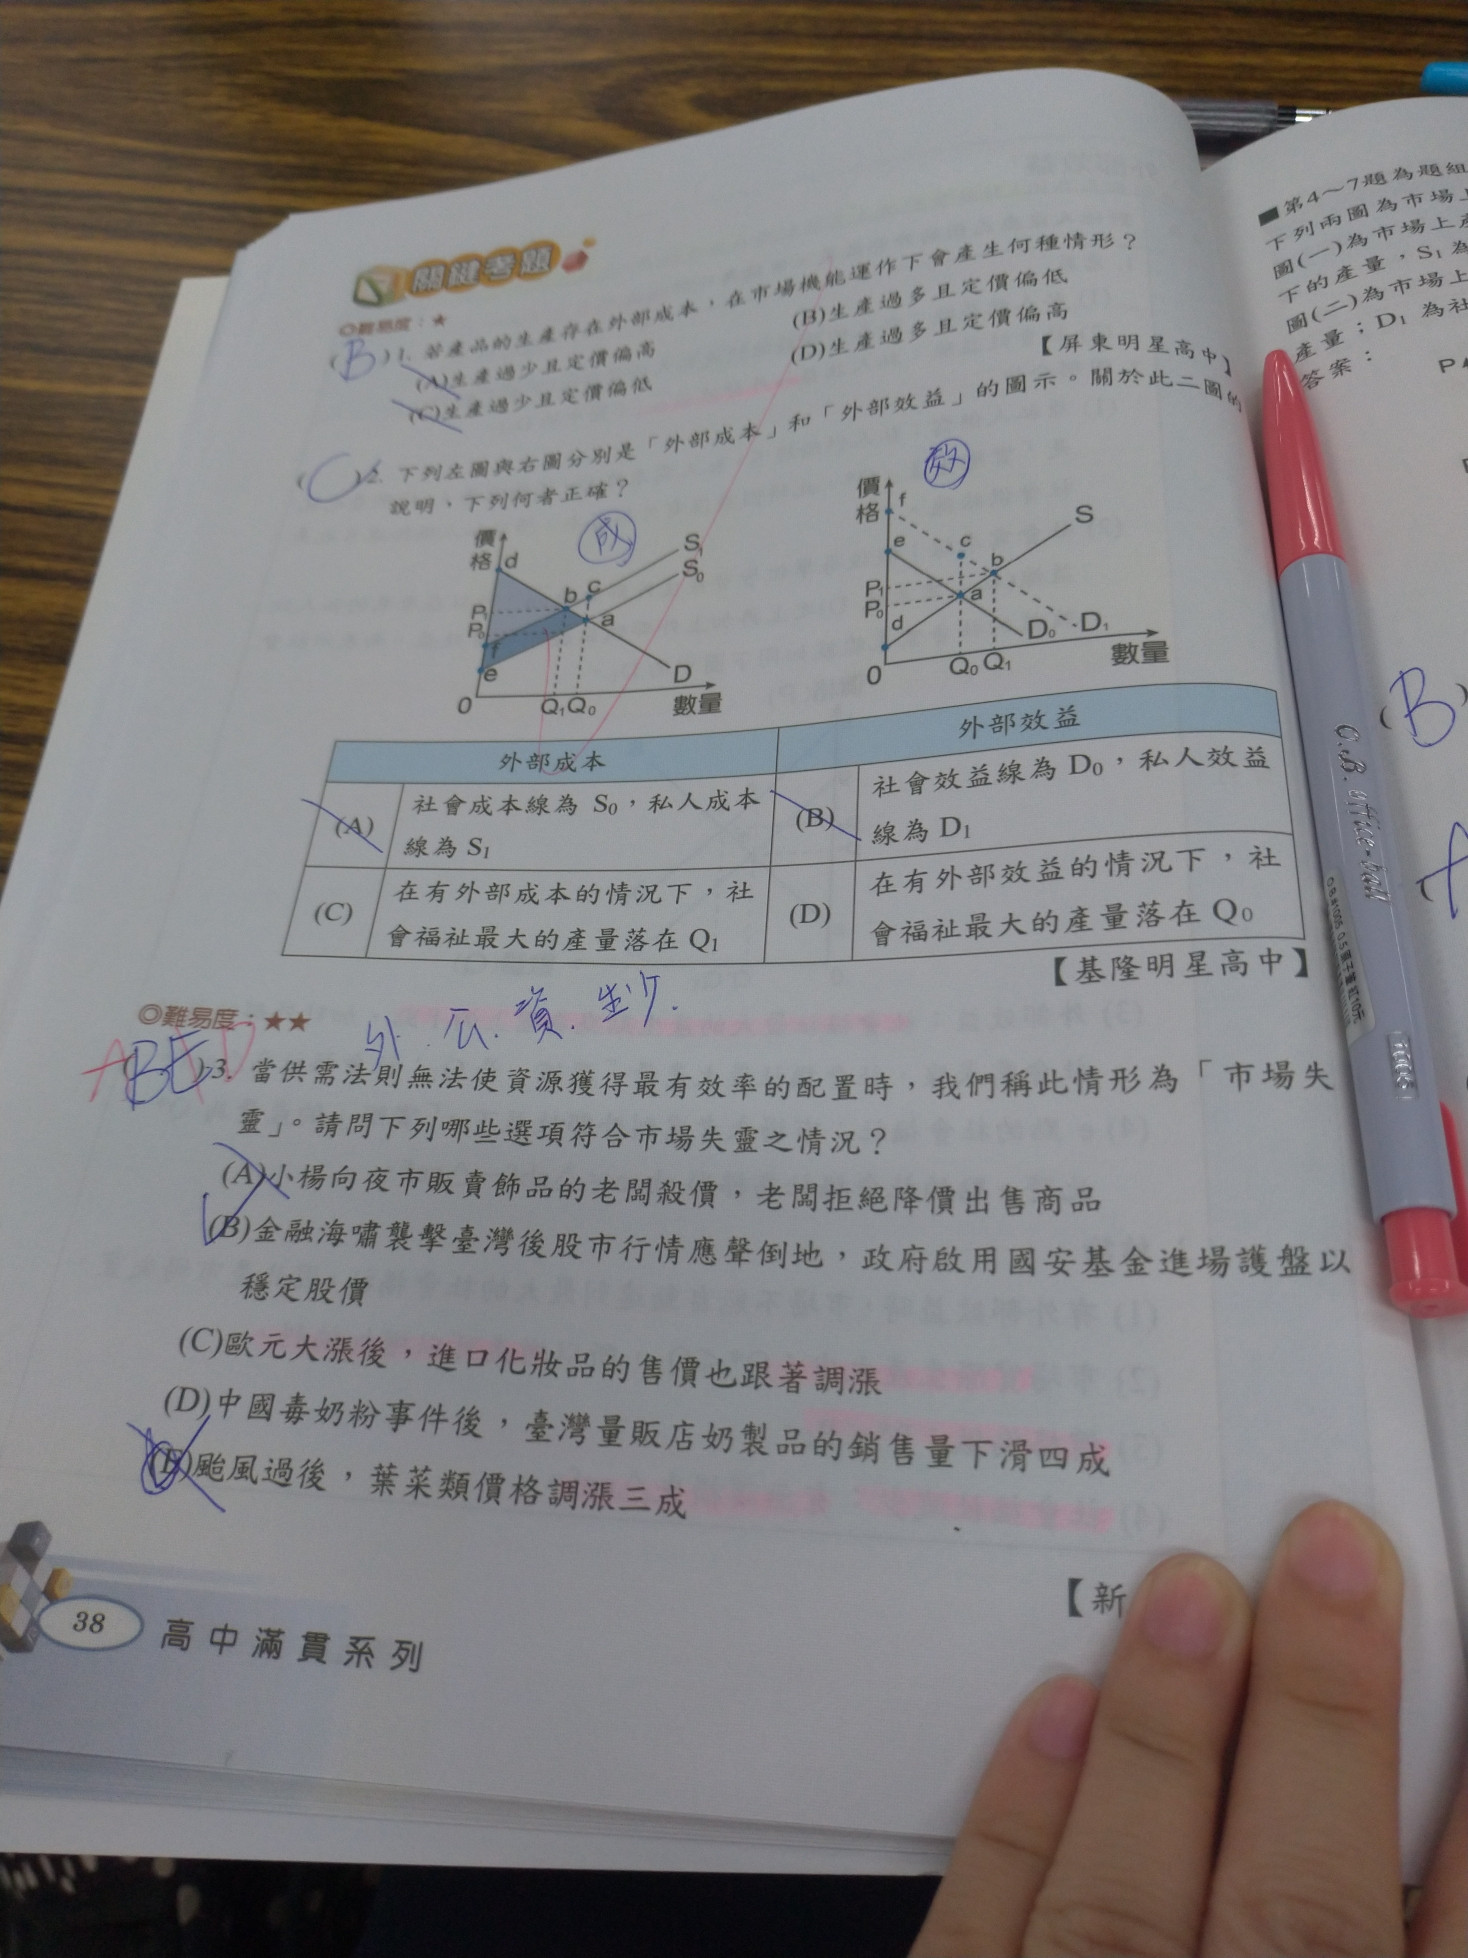 關鍵考題
◎難易度：★
(B)1. 若產品的生產存在外部成本，在市場機能運作下會產生何種情形？
(A)生產過少且定價偏高
(B)生產過多且定價偏低
(C)生產過少且定價偏低
(D)生產過多且定價偏高
【屏東明星高中】
(C)2. 下列左圖與右圖分別是「外部成本」和「外部效益」的圖示。關於此二圖的
說明，下列何者正確？
成
價格
d
S1
S0
b
c
a
P1
P0
f
e
D
0
Q1 Q0
數量
效
價格
f
e
c
b
S
P1
P0
a
d
D0
D1
0
Q0 Q1
數量
外部成本
外部效益
(A)
社會成本線為 S0，私人成本
線為 S1
(B)
社會效益線為 D0，私人效益
線為 D1
(C)
在有外部成本的情況下，社
會福祉最大的產量落在 Q1
(D)
在有外部效益的情況下，社
會福祉最大的產量落在 Q0
【基隆明星高中】
◎難易度：★★
外.公.資.
(BE)3. 當供需法則無法使資源獲得最有效率的配置時，我們稱此情形為「市場失
靈」。請問下列哪些選項符合市場失靈之情況？
(A)小楊向夜市販賣飾品的老闆殺價，老闆拒絕降價出售商品
(B)金融海嘯襲擊臺灣後股市行情應聲倒地，政府啟用國安基金進場護盤以
穩定股價
(C)歐元大漲後，進口化妝品的售價也跟著調漲
(D)中國毒奶粉事件後，臺灣量販店奶製品的銷售量下滑四成
(E)颱風過後，葉菜類價格調漲三成
【新
38
高中滿貫系列
■第4～7題為題組
下列兩圖為市場上
圖(一)為市場上產
下的產量，S1為
圖(二)為市場上
產量；D1 為社
答案：
P
(B)
O.B. office-ball